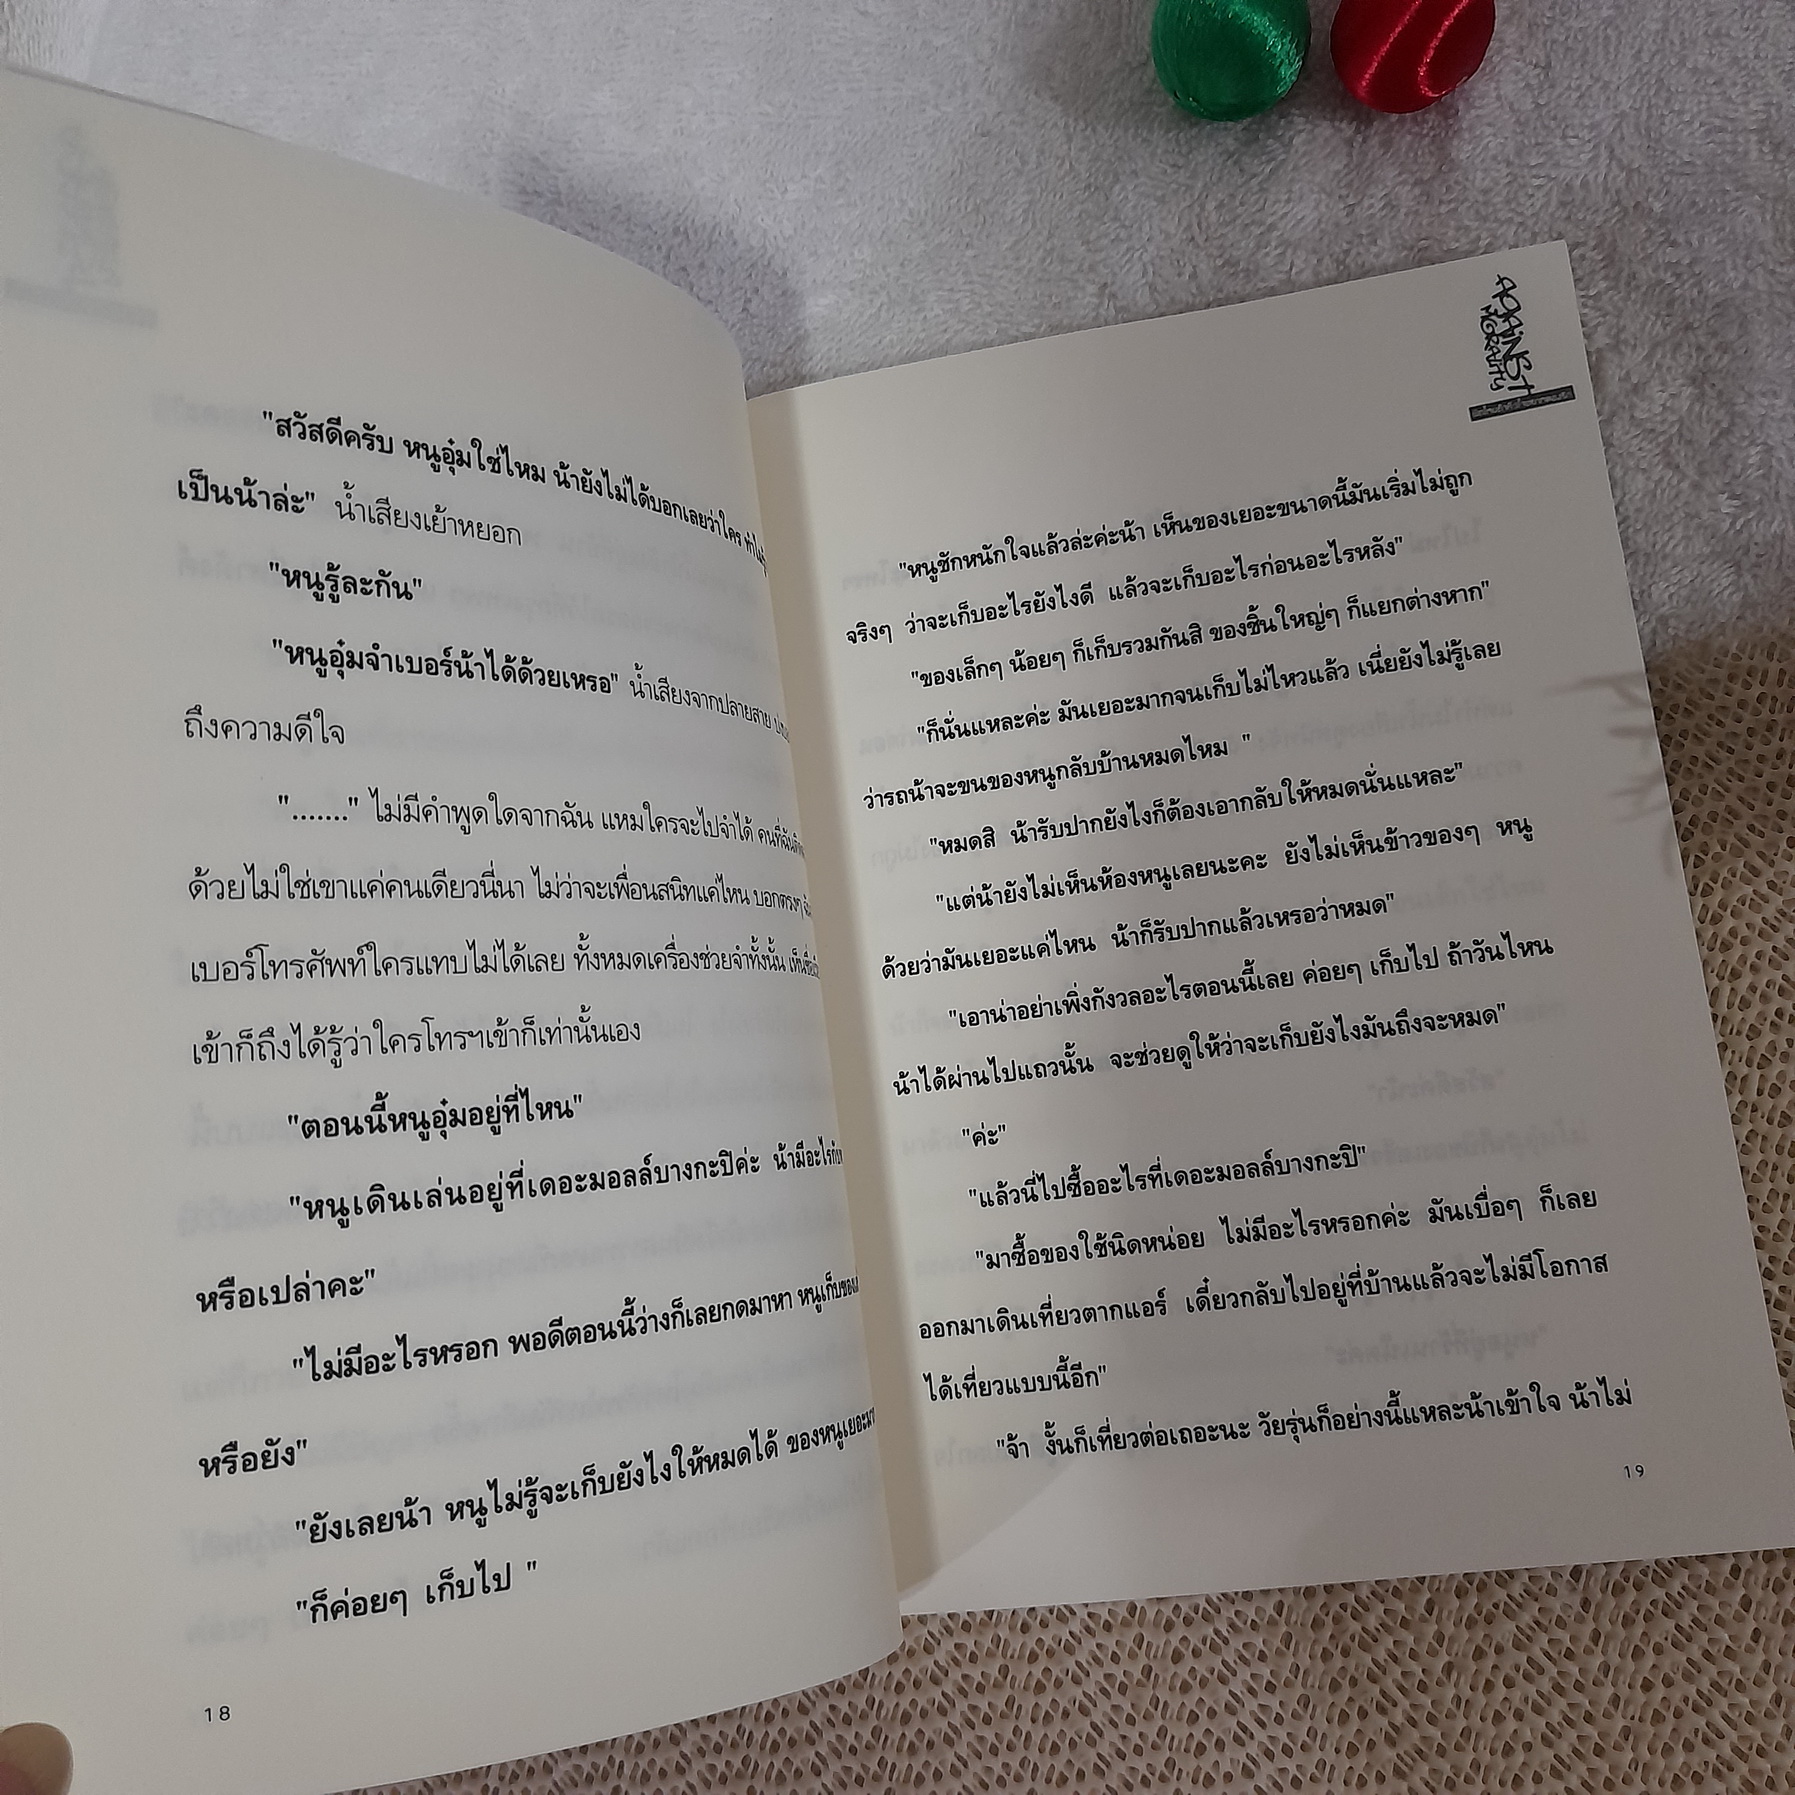 "สวัสดีครับ หนูอุ๋มใช่ไหม น้ายังไม่ได้บอกเลยว่าใคร
เป็นน้าล่ะ" น้ำเสียงเย้าหยอก
"หนูรู้ละกัน"
"หนูอุ๋มจำเบอร์น้าได้ด้วยเหรอ" น้ำเสียงจากปลายสาย
ถึงความดีใจ
"......." ไม่มีคำพูดใดจากฉัน แหมใครจะไปจำได้ คนที่ฉัน
ด้วยไม่ใช่เขาแค่คนเดียวนี่นา ไม่ว่าจะเพื่อนสนิทแค่ไหน บอกตรงๆ
เบอร์โทรศัพท์ใครแทบไม่ได้เลย ทั้งหมดเครื่องช่วยจำทั้งนั้น
เข้าก็ถึงได้รู้ว่าใครโทรฯเข้าก็เท่านั้นเอง
"ตอนนี้หนูอุ๋มอยู่ที่ไหน"
"หนูเดินเล่นอยู่ที่เดอะมอลล์บางกะปิค่ะ น้ามีอะไร
หรือเปล่าคะ"
"ไม่มีอะไรหรอก พอดีตอนนี้ว่างก็เลยกดมาหา หนูเก็บของ
หรือยัง"
"ยังเลยน้า หนูไม่รู้จะเก็บยังไงให้หมดได้ ของหนูเยอะ
"ก็ค่อยๆ เก็บไป "
18
AGAINST
MORALITY
"หนูชักหนักใจแล้วล่ะค่ะน้า เห็นของเยอะขนาดนี้มันเริ่มไม่ถูก
จริงๆ ว่าจะเก็บอะไรยังไงดี แล้วจะเก็บอะไรก่อนอะไรหลัง"
"ของเล็กๆ น้อยๆ ก็เก็บรวมกันสิ ของชิ้นใหญ่ๆ ก็แยกต่างหาก"
"ก็นั่นแหละค่ะ มันเยอะมากจนเก็บไม่ไหวแล้ว เนี่ยยังไม่รู้เลย
ว่ารถน้าจะขนของหนูกลับบ้านหมดไหม "
"หมดสิ น้ารับปากยังไงก็ต้องเอากลับให้หมดนั่นแหละ"
"แต่น้ายังไม่เห็นห้องหนูเลยนะคะ ยังไม่เห็นข้าวของๆ หนู
ด้วยว่ามันเยอะแค่ไหน น้าก็รับปากแล้วเหรอว่าหมด"
"เอาน่าอย่าเพิ่งกังวลอะไรตอนนี้เลย ค่อยๆ เก็บไป ถ้าวันไหน
น้าได้ผ่านไปแถวนั้น จะช่วยดูให้ว่าจะเก็บยังไงมันถึงจะหมด"
"ค่ะ"
"แล้วนี่ไปซื้ออะไรที่เดอะมอลล์บางกะปิ"
"มาซื้อของใช้นิดหน่อย ไม่มีอะไรหรอกค่ะ มันเบื่อๆ ก็เลย
ออกมาเดินเที่ยวตากแอร์ เดี๋ยวกลับไปอยู่ที่บ้านแล้วจะไม่มีโอกาส
ได้เที่ยวแบบนี้อีก"
"จ้า งั้นก็เที่ยวต่อเถอะนะ วัยรุ่นก็อย่างนี้แหละน้าเข้าใจ น้าไม่
19